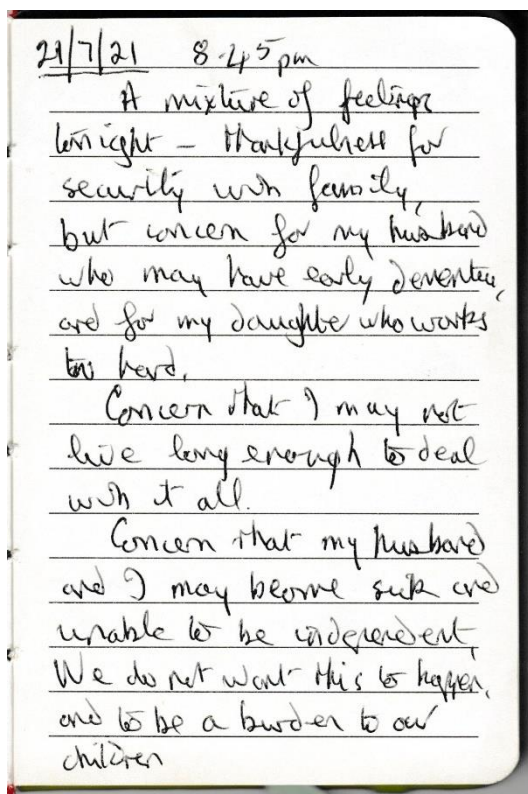 21/7/21 8.45pm
A mixture of feelings
tonight – thankfulness for
security with family,
but concern for my husband
who may have early dementia,
and for my daughter who works
too hard.
Concern that I may not
live long enough to deal
with it all.
Concern that my husband
and I may become sick and
unable to be independent,
We do not want this to happen,
and to be a burden to our
children